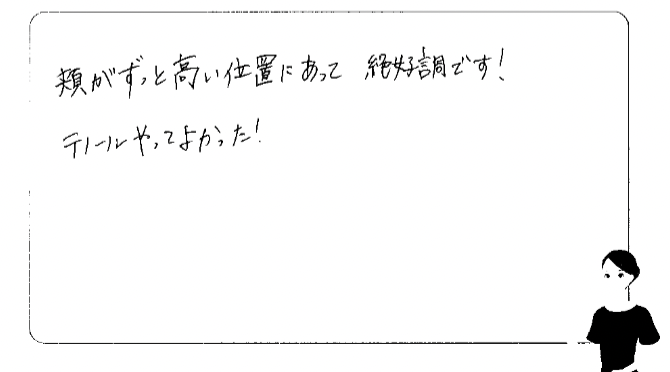 頬がずっと高い位置にあって 絶好調です!
テノールやってよかった!